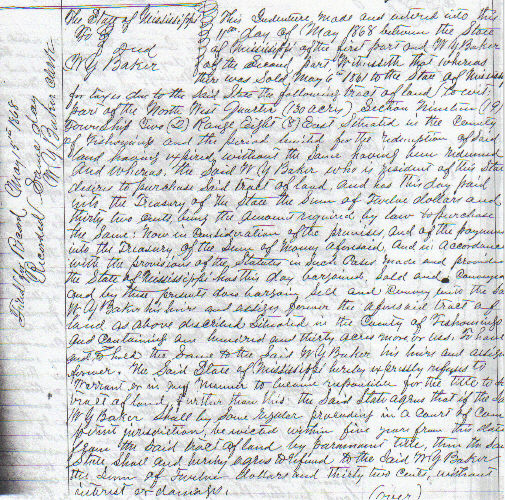 The State of Mississippi } This Indenture made and entered into this
To } 15th day of May 1868 between the State
} Deed } of Mississippi of the first part and W G Baker
W G Baker } of the Second part Witnesseth that whereas
there was Sold May 6th 1861 to the State of Mississi
for taxes due to the Said State the following tract of land to wit
part of the North West Quarter (130 acres) Section Nineteen (19)
Township Two (2) Range Eight (8) East Situated in the County
of Tishomingo and the period limited for the redemption of Said
land having expired without the same having been redeemed
And whereas the Said W G Baker who is resident of this State
desires to purchase Said tract of land and has this day paid
into the Treasury of the State the Sum of Twelve dollars and
thirty two cents, being the amount required by law to purchase
the Same. Now in Consideration of the premises and of the paymen
into the Treasury of the Sum of money aforesaid, And in accordance
with the provisions of the Statutes in Such Cases made and provided
the State of Mississippi has this day bargained Sold and Conveyed
and by these presents does bargain Sell and Convey unto the Sa
W G Baker his heirs and assigns forever the aforesaid tract of
land as above described Situated in the County of Tishomingo
and Containing one hundred and thirty acres more or less. To have
and to hold the Same to the Said W G Baker his heirs and assigns
forever. The Said State of Mississippi hereby expressly refuses to
Warrant or in any Manner to become responsible for the title to S
tract of land, further than this. the Said State agrees that if the Sa
W G Baker shall by some regular proceeding in a Court of Com
petent jurisdiction be evicted within five years from this date
from the Said tract of land by paramount title, then the Sa
State Shall and hereby agrees to refund to the Said W G Baker
the Sum of Twelve dollars and thirty two cents, without
interest or damages.
(over)
Filed for Record May 15th 1868
& Recorded Same day
W G Baker Clerk